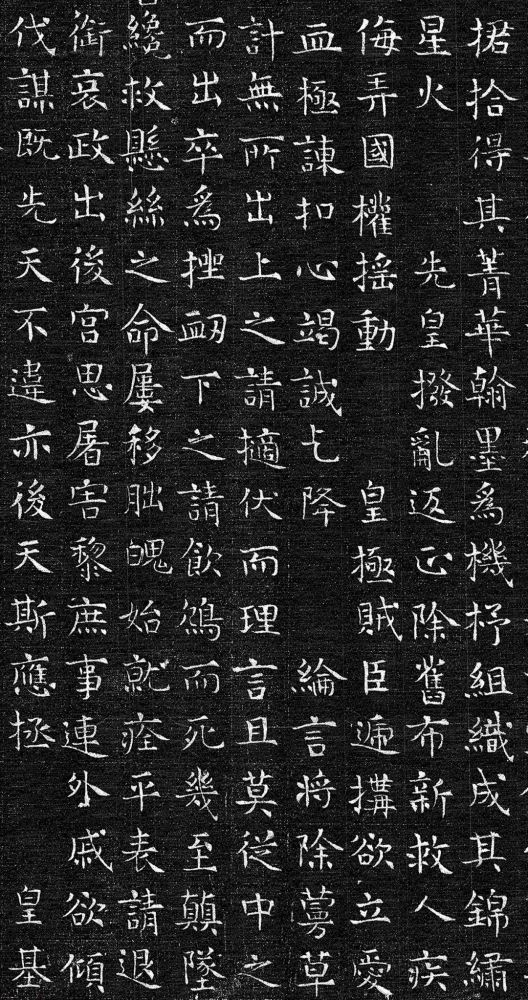 捃拾得其菁華翰墨爲機杼組織成其錦繡
星火　先皇撥亂返正除舊布新救人疾
侮弄國權摇動　皇極賊臣遞搆欲立愛
血極諫扣心竭誠乞降　綸言將除蔓草
計無所出上之請擿伏而理言且莫從中之
而出卒爲挫衂下之請飲鴆而死幾至顛墜
纔救懸絲之命屢移朏魄始就痊平表請退
銜哀政出後宮思屠害黎庶事連外戚欲傾
伐謀既先天不違亦後天斯應拯　皇基